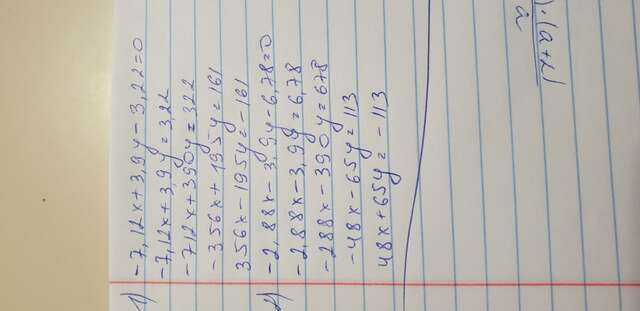 1) -7,12x+3,9y-3,22=0
-7,12x+3,9y=3,22
-712x+390y=322
-356x+195y=161
356x-195y=-161
2) -2,88x-3,9y-6,78=0
-2,88x-3,9y=6,78
-288x-390y=678
-48x-65y=113
48x+65y=-113
)·(a+2)
2